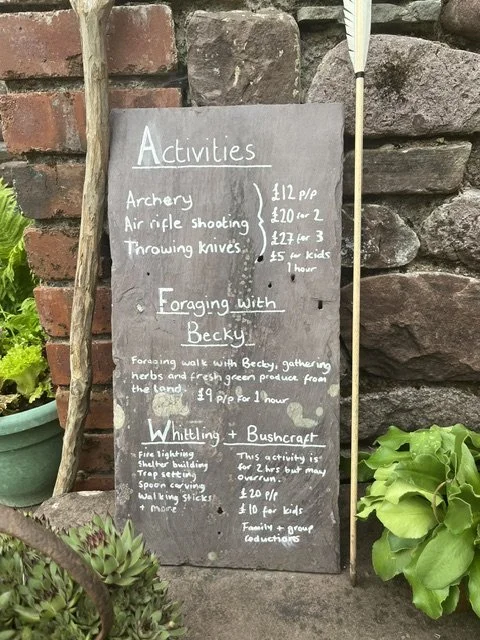 Activities
Archery
Air rifle shooting
Throwing knives
£12 p/p
£20 for 2
£27 for 3
£5 for kids
1 hour
Foraging with
Becky
Foraging walk with Becky, gathering
herbs and fresh green produce from
the land. £9 p/p for 1 hour
Whittling + Bushcraft
Fire lighting
Shelter building
Trap setting
Spoon carving
Walking sticks
+ more
This activity is
for 2 hrs but may
overrun.
£20 p/p
£10 for kids
Family + group
reductions